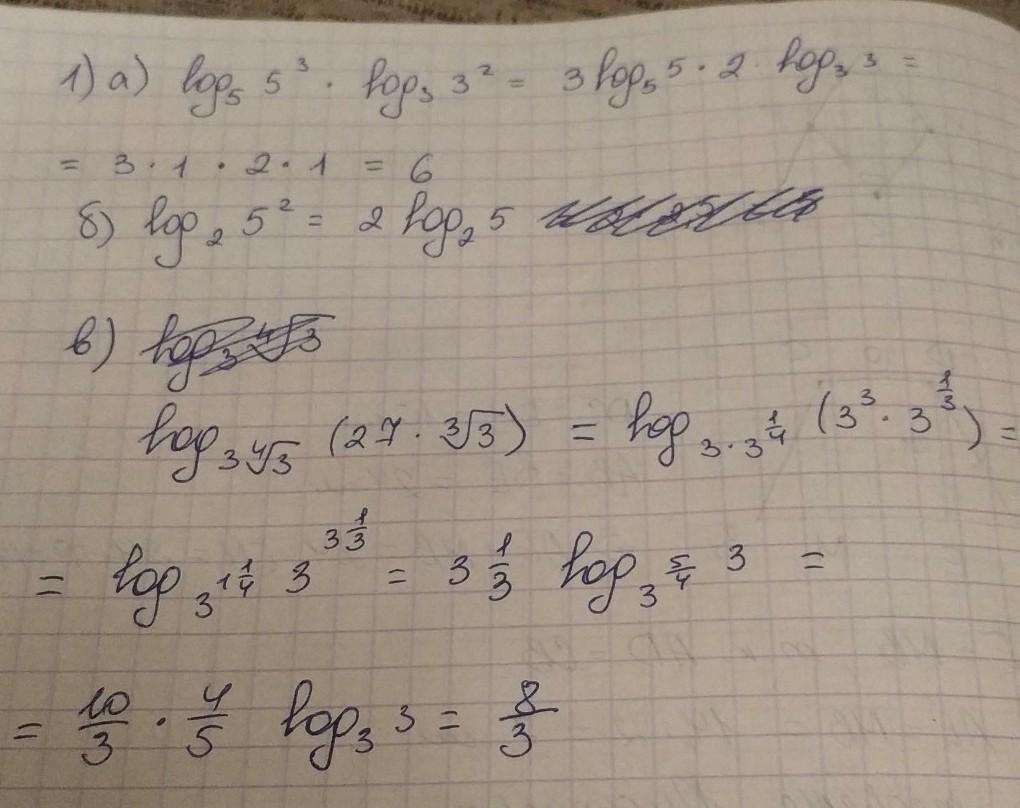 1) а) log₅ 5³ · log₃ 3² = 3 log₅ 5 · 2 · log₃ 3 =
= 3 · 1 · 2 · 1 = 6
б) log₂ 5² = 2 log₂ 5
в) log₃ ∜3
log_{3∜3} (27 · ∛3) = log_{3·3^{1/4}} (3³ · 3^{1/3}) =
= log_{3^{1 1/4}} 3^{3 1/3} = 3 1/3 log_{3^{5/4}} 3 =
= 10/3 · 4/5 log₃ 3 = 8/3